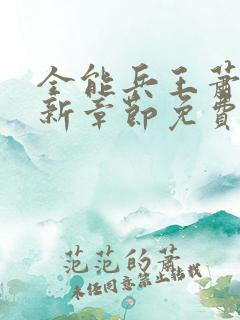 全能兵王萧
新章節免費
范范的萧
未经同意禁止转载